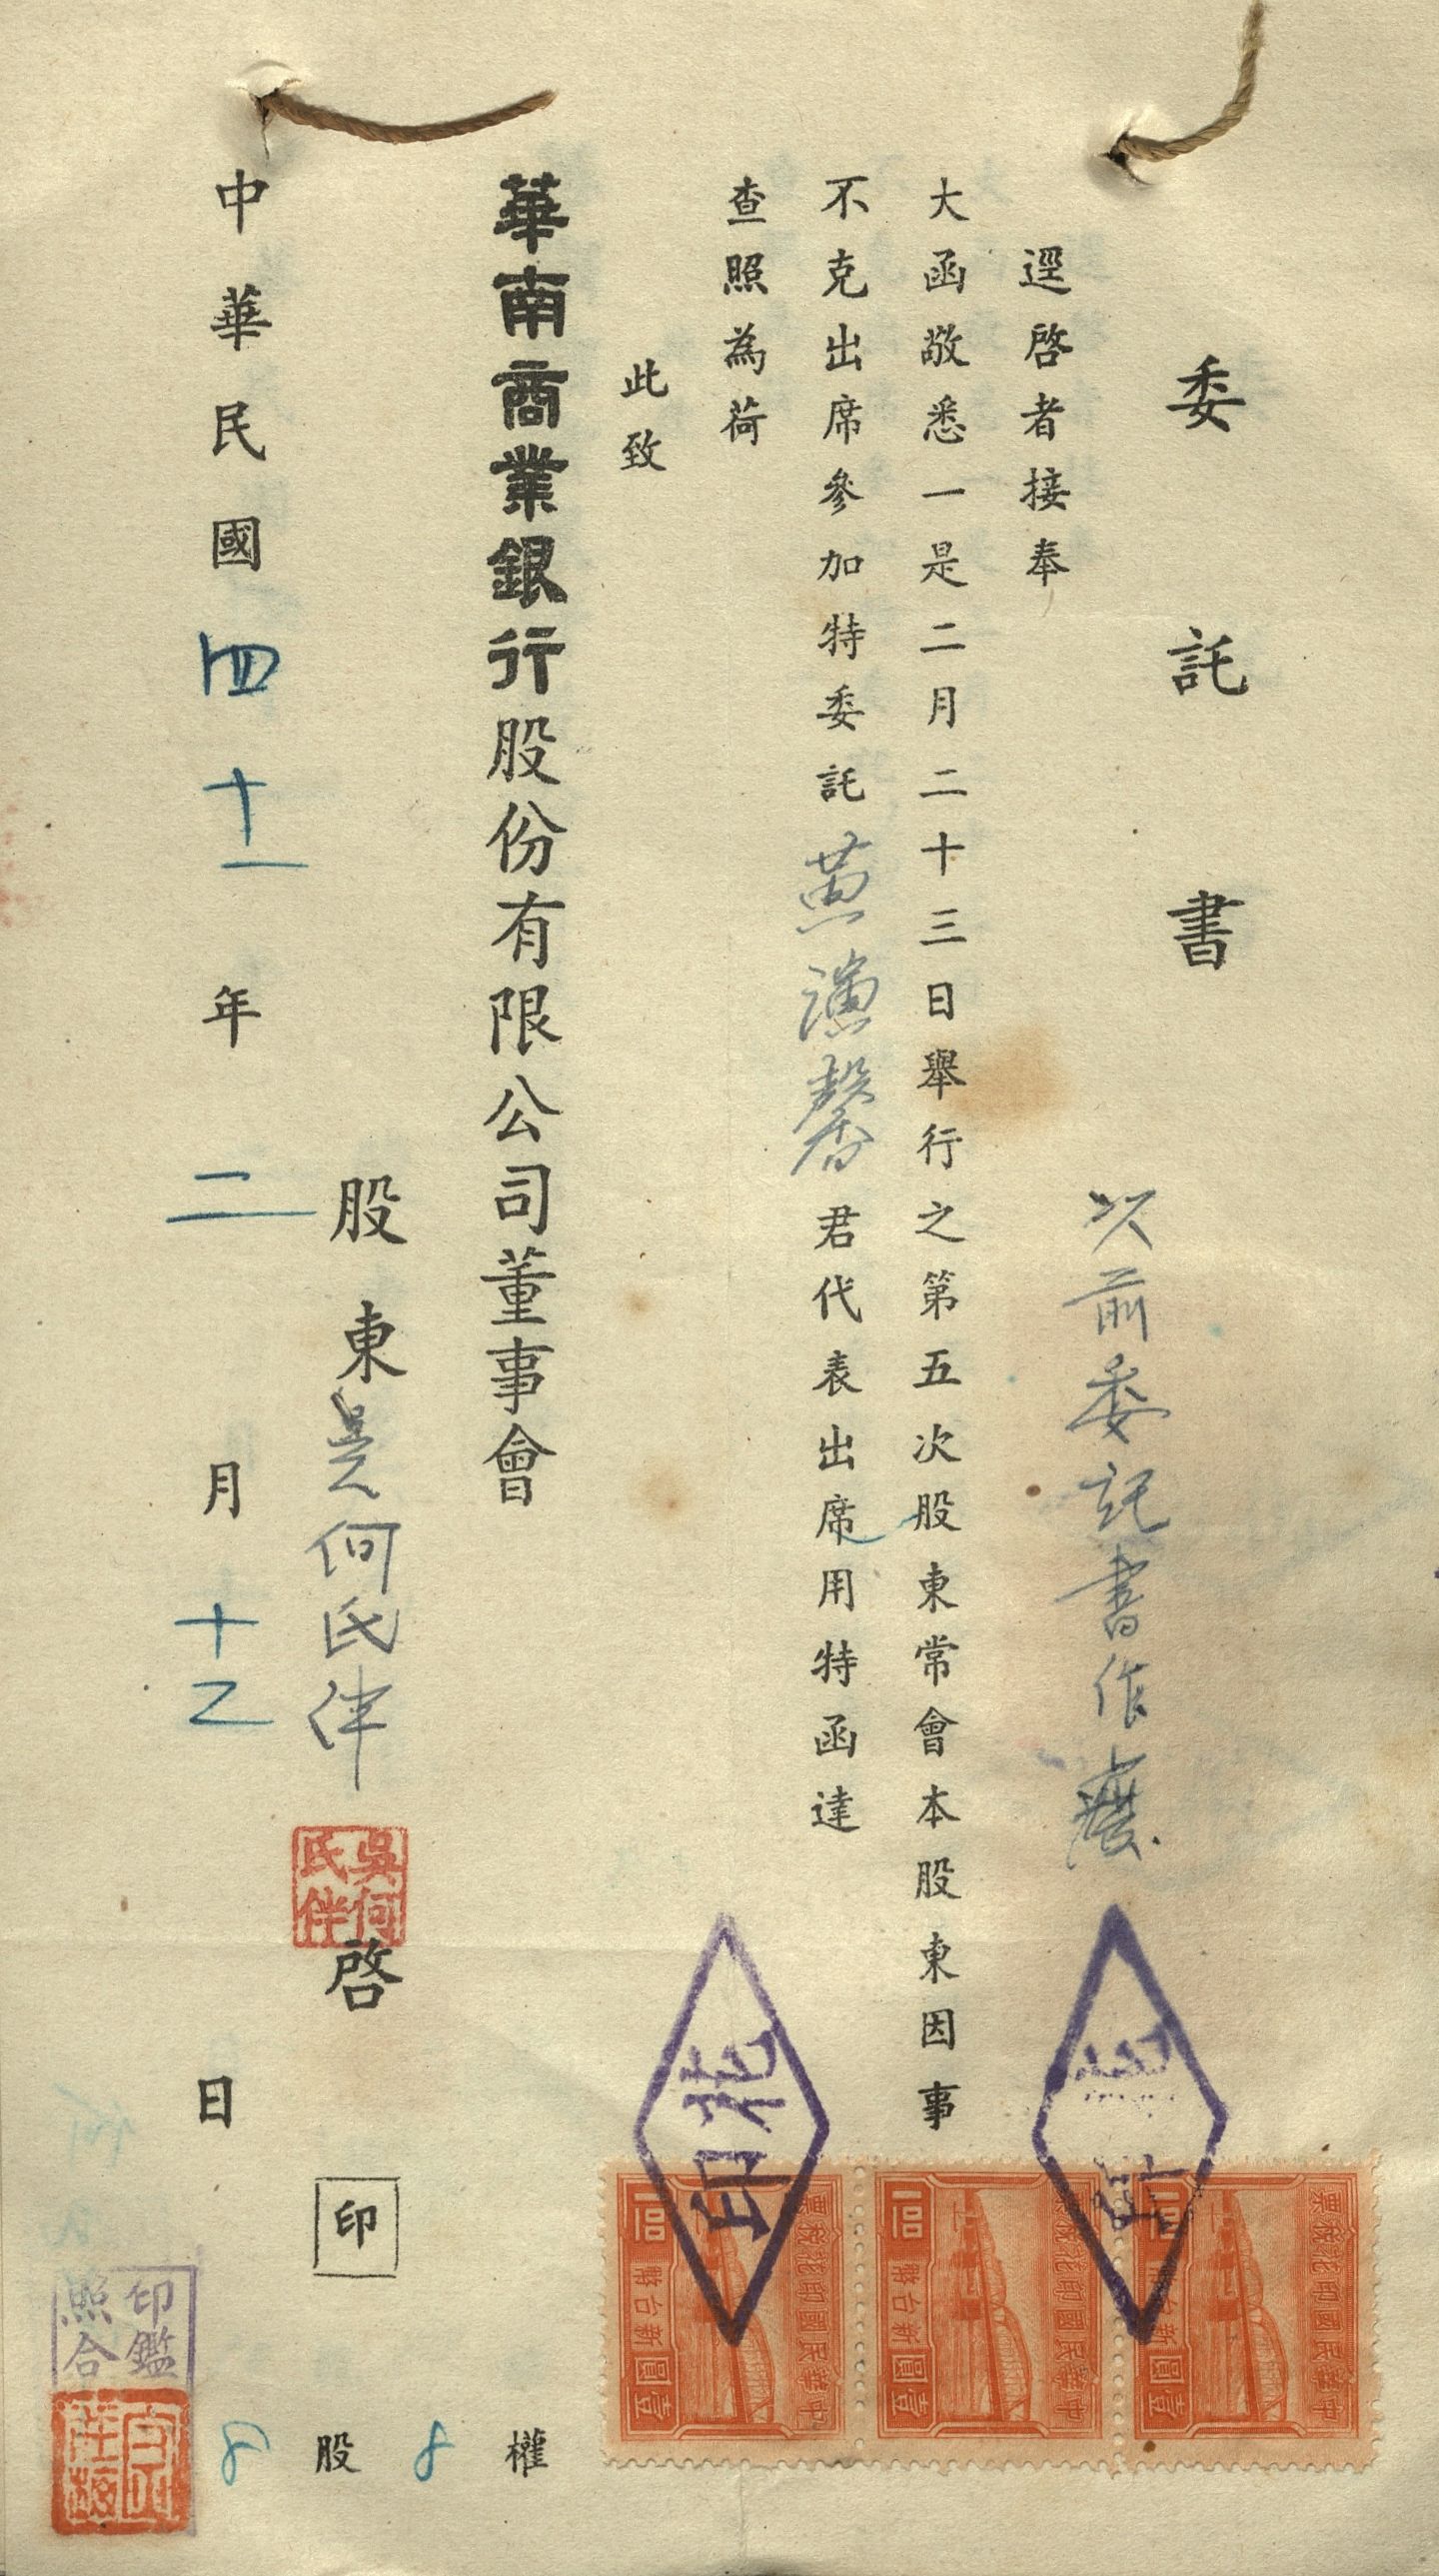 委託書
以前委託書作廢
逕啓者接奉
大函敬悉一是二月二十三日舉行之第五次股東常會本股東因事
不克出席參加特委託黃演馨君代表出席用特函達
查照為荷
此致
華南商業銀行股份有限公司董事會
股東吳何氏伴啓
吳何氏伴
印
8股8權
中華民國四十一年二月十乙日
印鑑照合
印花
中華民國印花稅票
新台幣
壹圓
1.00
中華民國印花稅票
新台幣
壹圓
1.00
中華民國印花稅票
新台幣
壹圓
1.00